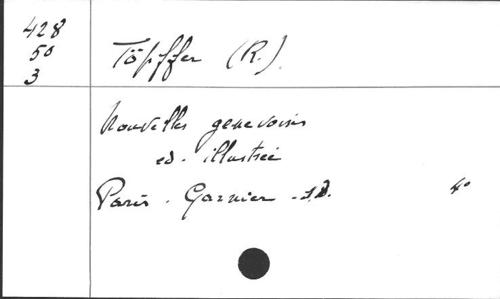 428
50
3
Töpffer (R.)
Nouvelles genevoises
ed. illustrée
Paris. Garnier. s.d. 4°